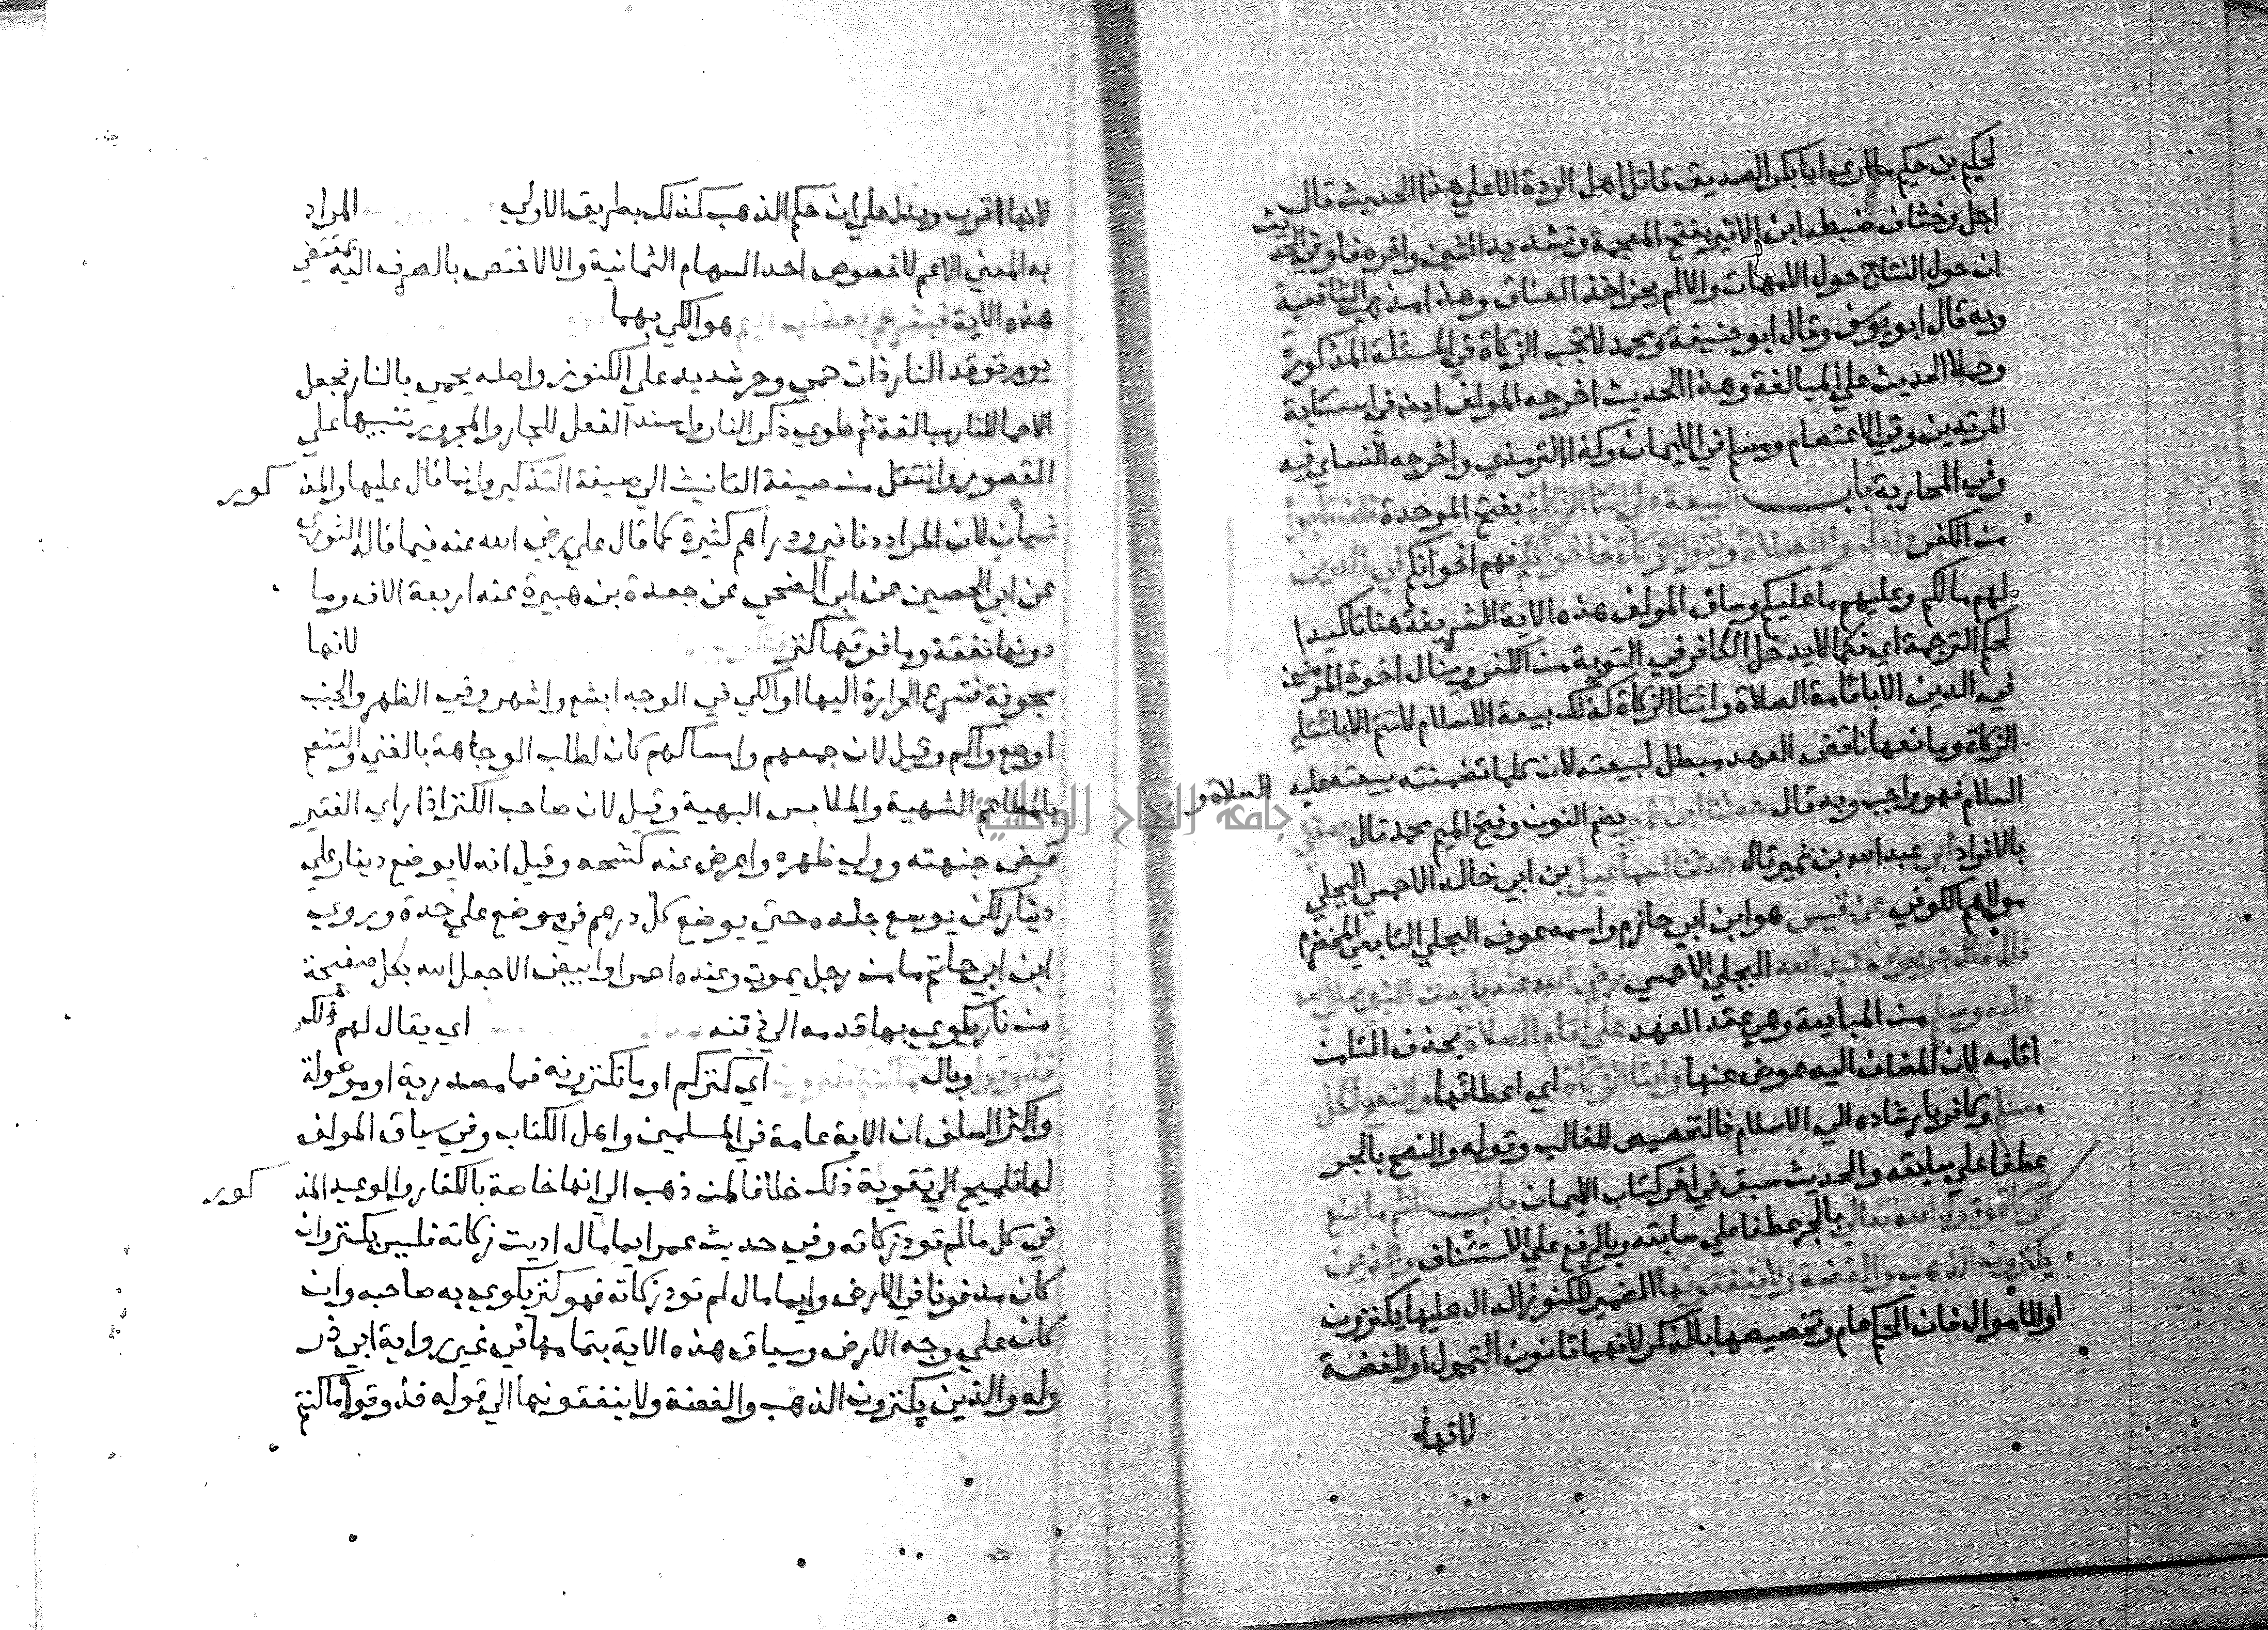 لحكيم بن حكيم ابا بكر الصديق قاتل اهل الردة الا علي هذا الحديث قال
اجل وخشاف ضبطه ابن الاثير بفتح المعجمة وتشديد الشين واخره فا وفي الحديث
ان حول النتاج حول الامهات والا لم يجز اخذ العناق وهذا مذهب الشافعية
وبه قال ابو يوسف وقال ابو حنيفة ومحمد لا تجب الزكاة في المسئلة المذكورة
وحملا الحديث علي المبالغة وهذا الحديث اخرجه المولف ايض في استتابة
المرتدين وفي الاعتصام ومسلم في الايمان وكذا الترمذي واخرجه النساي فيه
وفي المحاربة باب البيعة علي ايتا الزكاة بفتح الموحدة فان تابوا
من الكفر واقاموا الصلاة واتوا الزكاة فاخوانكم فهم اخوانكم في الدين
لهم مالكم وعليهم ما عليكم وساق المولف هذه الاية الشريفة هنا تاكيدا
لحكم الترجمة اي فكما لا يدخل الكافر في التوبة من الكفر وينال اخوة المومنين
في الدين الا باقامة الصلاة وايتا الزكاة كذلك بيعة الاسلام لا تتم الا بايتاء
الزكاة ومانعها ناقض العهد مبطل لبيعته لان كلما تضمنته بيعته عليه الصلاة و
السلام فهو واجب وبه قال حدثنا ابن نمير بضم النون وفتح الميم محمد قال حدثني
بالافراد ابي عبد الله بن نمير قال حدثنا اسماعيل بن ابي خالد الاحمسي البجلي
مولاهم الكوفي عن قيس هو ابن ابي حازم واسمه عوف البجلي التابعي المخضرم
قال قال جرير بن عبد الله البجلي الاحمسي رضي الله عنه بايعت النبي صلي الله
عليه وسلم من المبايعة وهي عقد العهد علي اقام الصلاة بحذف التا من
اقامه لان المضاف اليه عوض عنها وايتا الزكاة اي اعطائها والنصح لكل
مسلم وكافر بارشاده الي الاسلام فالتخصيص للغالب وقوله والنصح بالجر
عطفا علي سابقه والحديث سبق في اخر كتاب الايمان باب اثم مانع
الزكاة وقول الله تعالي بالجر عطفا علي سابقه وبالرفع علي الاستئناف والذين
يكنزون الذهب والفضة ولا ينفقونها الضمير للكنوز الدال عليها يكنزون
او للاموال فان الحكم عام وتخصيصها بالذكر لانهما قانون التمول او للفضة
لانها
لانها اقرب ويدل علي ان حكم الذهب كذلك بطريق الاولي المراد
به المعني الاعم لا خصوص احد السهام الثمانية والا لاختص بالصرف اليه بمقتضي
هذه الاية فبشرهم بعذاب اليم هو الكي بهما
يوم توقد النار ذات حمي وحر شديد علي الكنوز واصله يحمي بالنار فجعل
الاحما للنار مبالغة ثم طوي ذكر النار واسند الفعل للجار والمجرور تنبيها علي
المقصور وانتقل من صيغة التانيث الي صيغة التذكير وانما قال عليها والمذكور
شيأن لان المراد دنانير ودراهم كثيرة كما قال علي رضي الله عنه فيما قاله الثوري
عن ابي الحصين عن ابي الضحي عن جعدة بن هبيرة عنه اربعة الاف وما
دونها نفقة وما فوقها كنز لانها
مجوفة فتسرع الحرارة اليها او الكي في الوجه ابشع واشهر وفي الظهر والجنب
اوجع والم وقيل لان جمعهم وامساكهم كان لطلب الوجاهة بالغني والتنعم
بالمطاعم الشهية والملابس البهية وقيل لان صاحب الكنز اذا راي الفقير
قبض جبهته وولي ظهره واعرض عنه كشحه وقيل انه لا يوضع دينار علي
دينار لكن يوسع جلده حتي يوضع كل درهم في موضع علي حدة وروي
ابن ابي حاتم ما من رجل يموت وعنده احمر او ابيض الا جعل الله بكل صفيحة
من نار يكوي بها قدمه الي ذقنه اي يقال لهم ذلك
فذوقوا وبال ما كنتم تكنزون اي كنزكم او ما تكنزونه فما مصدرية او موصولة
واكثر السلف ان الاية عامة في المسلمين واهل الكتاب وفي سياق المولف
لها تلميح الي تقوية ذلك خلافا لمن ذهب الي انها خاصة بالكفار والوعيد المذكور
في كل ما لم تود زكاته وفي حديث عمر ايما مال اديت زكاته فليس بكنز وان
كان مدفونا في الارض وايما مال لم تود زكاته فهو كنز يكوي به صاحبه وان
كان علي وجه الارض وسياق هذه الاية بتمامها في غير رواية ابي ذر
وله والذين يكنزون الذهب والفضة ولا ينفقونها الي قوله فذوقوا ما كنتم
جامعة النجاح الوطنية